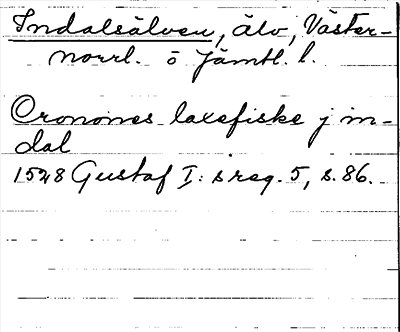 Indalsälven, älv, Väster-
norrl. o Jämtl. l.
Cronones laxefiske j in-
dal
1528 Gustaf I: s reg. 5, s. 86.